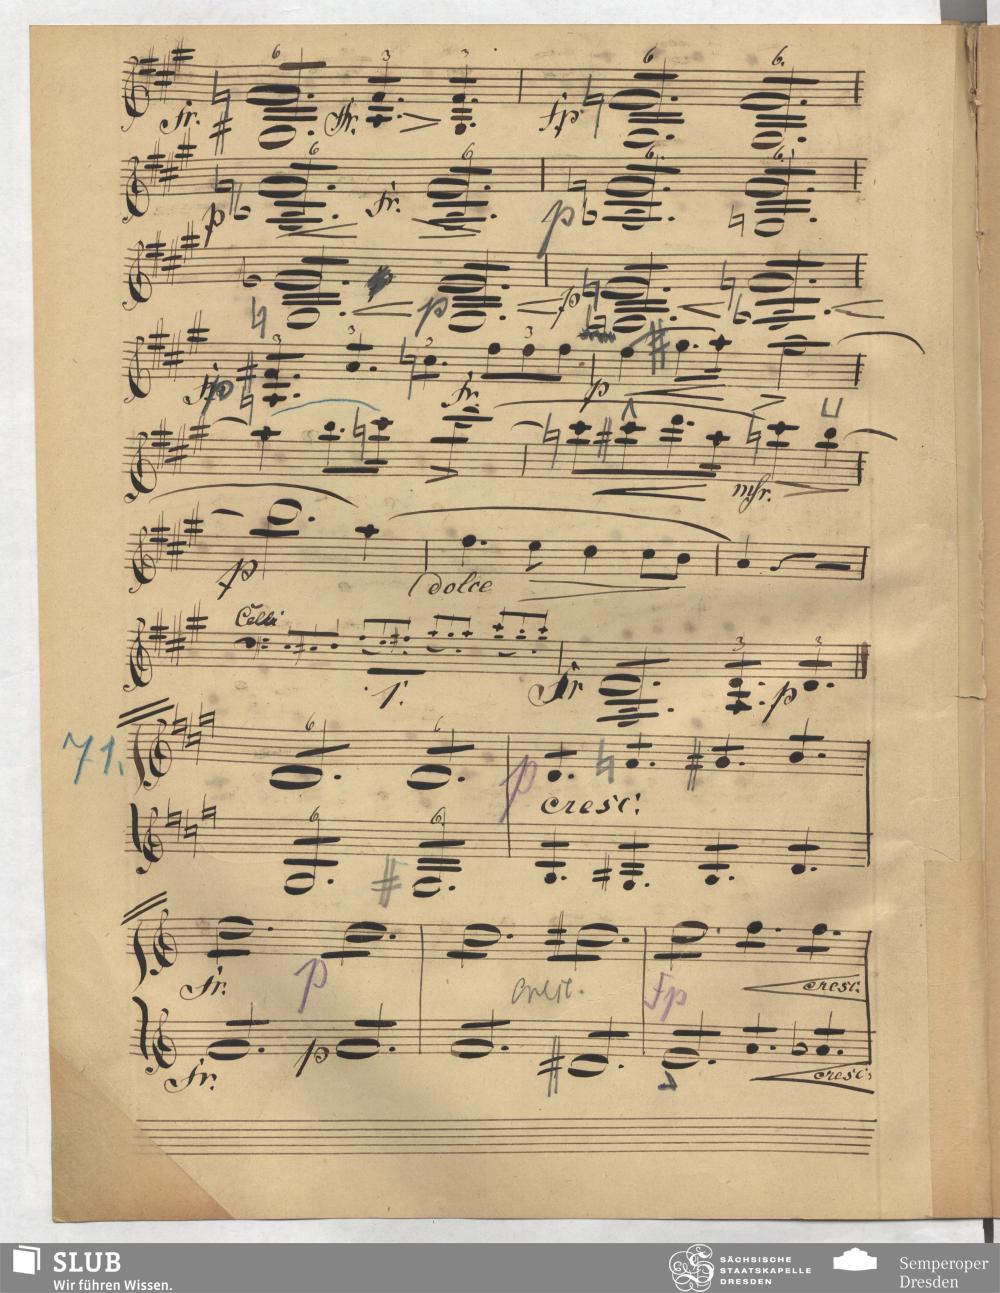 6 3 3 6 6.
fr. ffr. fp
6 6 6. 6.
p fr. p
p p
3 3 3 3
fp fr. p
mfr.
p dolce
Celli
3 3
1. fr p
71. 6 6
p cresc:
6 6
fr. p cresc. fp cresc:
fr. p cresc:
SLUB
Wir führen Wissen.
SÄCHSISCHE
STAATSKAPELLE
DRESDEN
Semperoper
Dresden